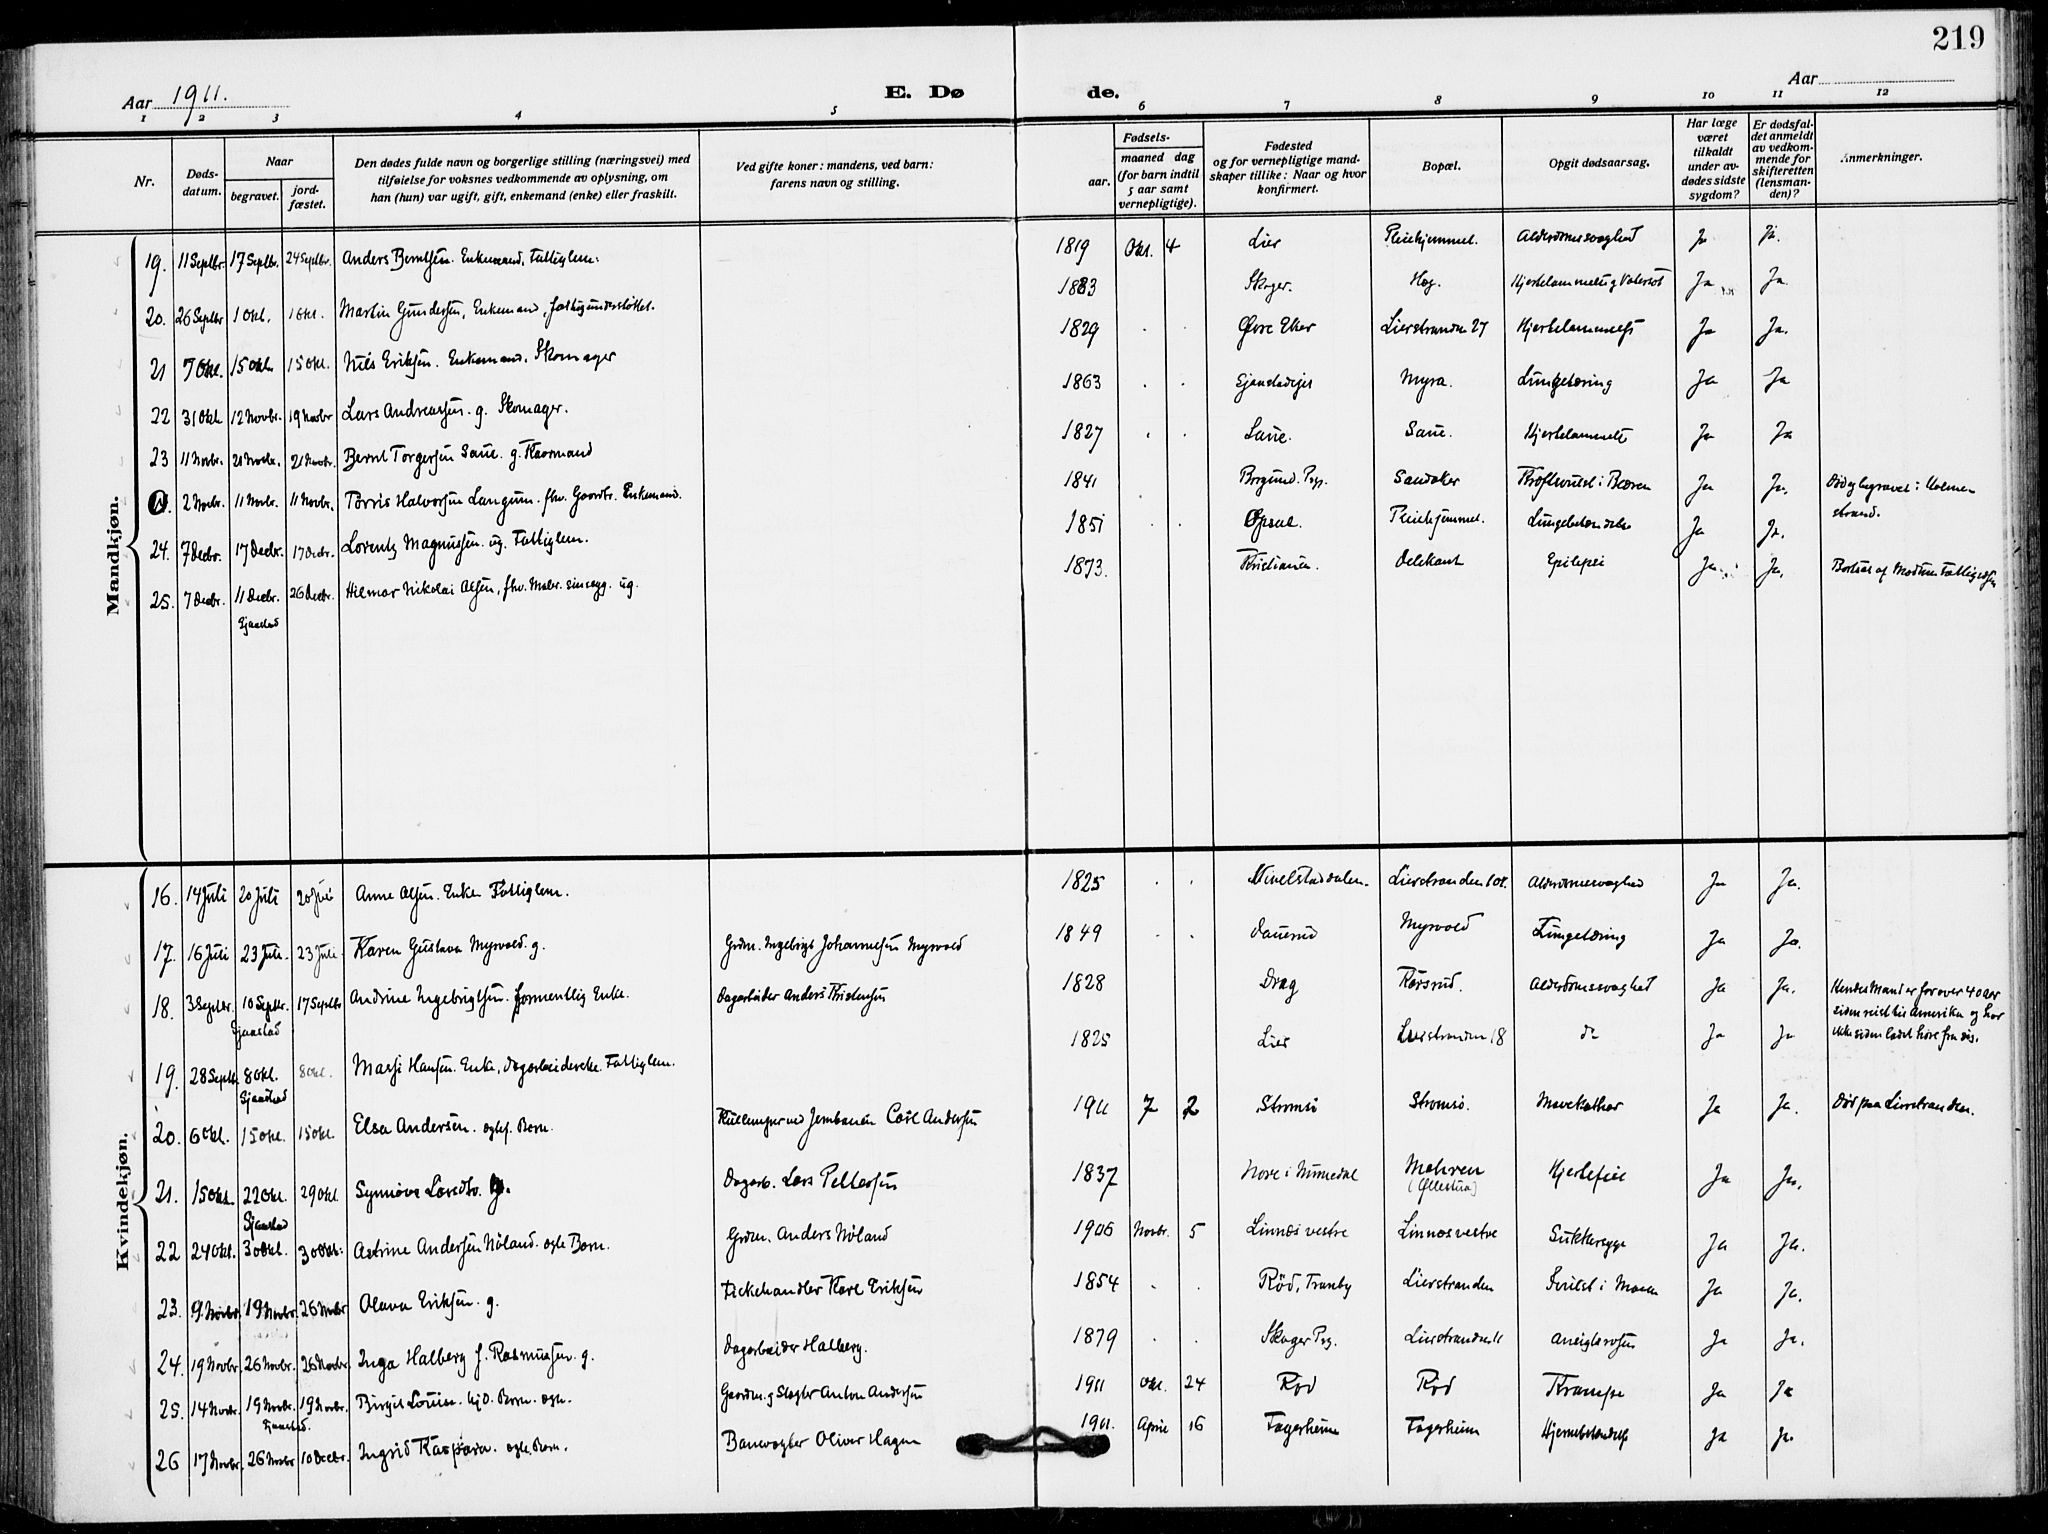 219
Aar 1911.
E. Dø de.
Aar
1 2 3 4 5 6 7 8 9 10 11 12
Nr.
Døds-
datum.
Naar
begravet.
jord-
fæstet.
Den dødes fulde navn og borgerlige stilling (næringsvei) med
tilføielse for voksnes vedkommende av oplysning, om
han (hun) var ugift, gift, enkemand (enke) eller fraskilt.
Ved gifte koner: mandens, ved barn:
farens navn og stilling.
Fødsels-
aar.
maaned dag
(for barn indtil
5 aar samt
vernepligtige).
Fødested
og for vernepligtige mand-
skaper tillike: Naar og hvor
konfirmert.
Bopæl.
Opgit dødsaarsag.
Har læge
været
tilkaldt
under av-
dødes sidste
sygdom?
Er dødsfal-
det anmeldt
av vedkom-
mende for
skifteretten
(lensman-
den)?
Anmerkninger.
Mandkjøn.
19. 11 Septbr. 17 Septbr. 24 Septbr. Anders Berntsen. Enkemand, Fattiglem. 1819 Okt. 4 Lier Pleiehjemmet. Alderdomssvaghet Ja Ja.
20. 26 Septbr 1 Okt. 1 Okt. Martin Gundersen, Enkemand, fattigunderstøttet. 1833 Skoger. Hæg. Hjertelammelse og Vatersot Ja Ja.
21 7 Okt. 15 Okt. 15 Okt. Nils Eriksen. Enkemand. Skomager 1829 Øvre Eker Lierstranden 27 Hjertelammelse Ja Ja.
22 31 Okt 12 Novbr. 19 Novbr Lars Andreassen. g. Skomager. 1863 Sjaastadejet Myra. Lungetæring Ja Ja
23 11 Novbr. 21 Novbr. 21 Novbr. Bernt Torgersen Saue. g. Kaarmand 1827 Saue. Saue. Hjertelammelse Ja Ja
2 Novbr. 11 Novbr. 11 Novbr. Torris Halvorsen Langum. fhv. Gaardbr. Enkemand. 1841 Borgund. Psgj. Sandaker Kræftsvulst i Blæren Ja Ja. Død og begravet i Holmen
strand.
24. 7 Decbr. 17 Decbr. 17 Decbr. Lorentz Magnussen. ug. Fattiglem. 1851 Opsal. Pleiehjemmet. Lungebetændelse Ja Ja.
25. 7 Decbr. 11 Decbr. 26 Decbr. Hilmar Nikolai Olsen, fhv. Maler. sinssyg. ug. 1873. Kristiania. Delekant Epilepsi Ja. Ja. Bortsat af Modum Fattigvæsen
Sjaastad
Kvindekjøn.
16. 14 Juli 20 Juli 20 Juli Anne Olsen. Enke. Fattiglem. 1825 Lierstranden 101. Alderdomssvaghed Ja Ja.
17. 16 Juli 23 Juli. 23 Juli. Karen Gustava Myrvold. g. Grdm. Ingebrigt Johannesen Myrvold 1849 Dauerud Myrvold Lungetæring Ja Ja.
18. 3 Septbr. 10 Septbr. 17 Septbr Andrine Ingebrigtsen. formentlig Enke. Dagarbeider Anders Kristensen 1828 Drag Korsrud. Alderdomssvaghet Ja Ja. Hendes Mand er for over 40 aar
Sjaastad siden reist til Amerika og har
ikke siden ladet høre fra sig.
19. 28 Septbr. 8 Okt. 8 Okt. Hansen. Enke, Dagarbeiderske. Fattiglem. 1825 Lier Lierstranden 18 do Ja Ja
Sjaastad
20. 6 Okt. 15 Okt. 15 Okt. Elsa Andersen. ægtef. Barn. Kullemper ved Jernbanen Carl Andersen 1911 7 2 Strømsø Strømsø. Mavekatthar Ja Ja. Død paa Lierstranden.
21. 15 Okt. 22 Okt. 29 Okt. Synnøve Larsdtr. g. Dagarb. Lars Pettersen 1837 Nore i Numedal Mehren Hjertefeil Ja Ja.
Sjaastad (Øllestua)
22 24 Okt. 30 Okt. 30 Okt. Astrine Andersen Nøland. ægte Barn. Grdm. Anders Nøland 1906 Novbr. 5 Linnes vestre Linnes vestre Sukkersyge Ja Ja.
23. 9. Novbr. 19 Novbr. 26 Novbr Olava Eriksen. g. Fiskehandler Karl Eriksen 1854 Rød, Tranby Lierstranden Svulst i Maven Ja Ja.
24. 19 Novbr. 26 Novbr. 26 Novbr. Inga Halberg f. Rasmussen. g. Dagarbeider Halberg. 1879 Skoger Psg. Ansigtsrosen Ja Ja.
25. 14 Novbr. 19 Novbr. 19 Novbr. Birgit Louise. hjd. Barn. ægte. Gaardm. og Slagter Anton Andersen 1911 Okt. 24 Rød Rød Krampe Ja Ja
Sjaastad.
26 17 Novbr. 26 Novbr 10 Decbr. Ingrid Kaspara. ægte. Barn. Banevogter Oliver Hagen 1911. April 16 Fagerheim Fagerheim Hjernebetændelse Ja Ja